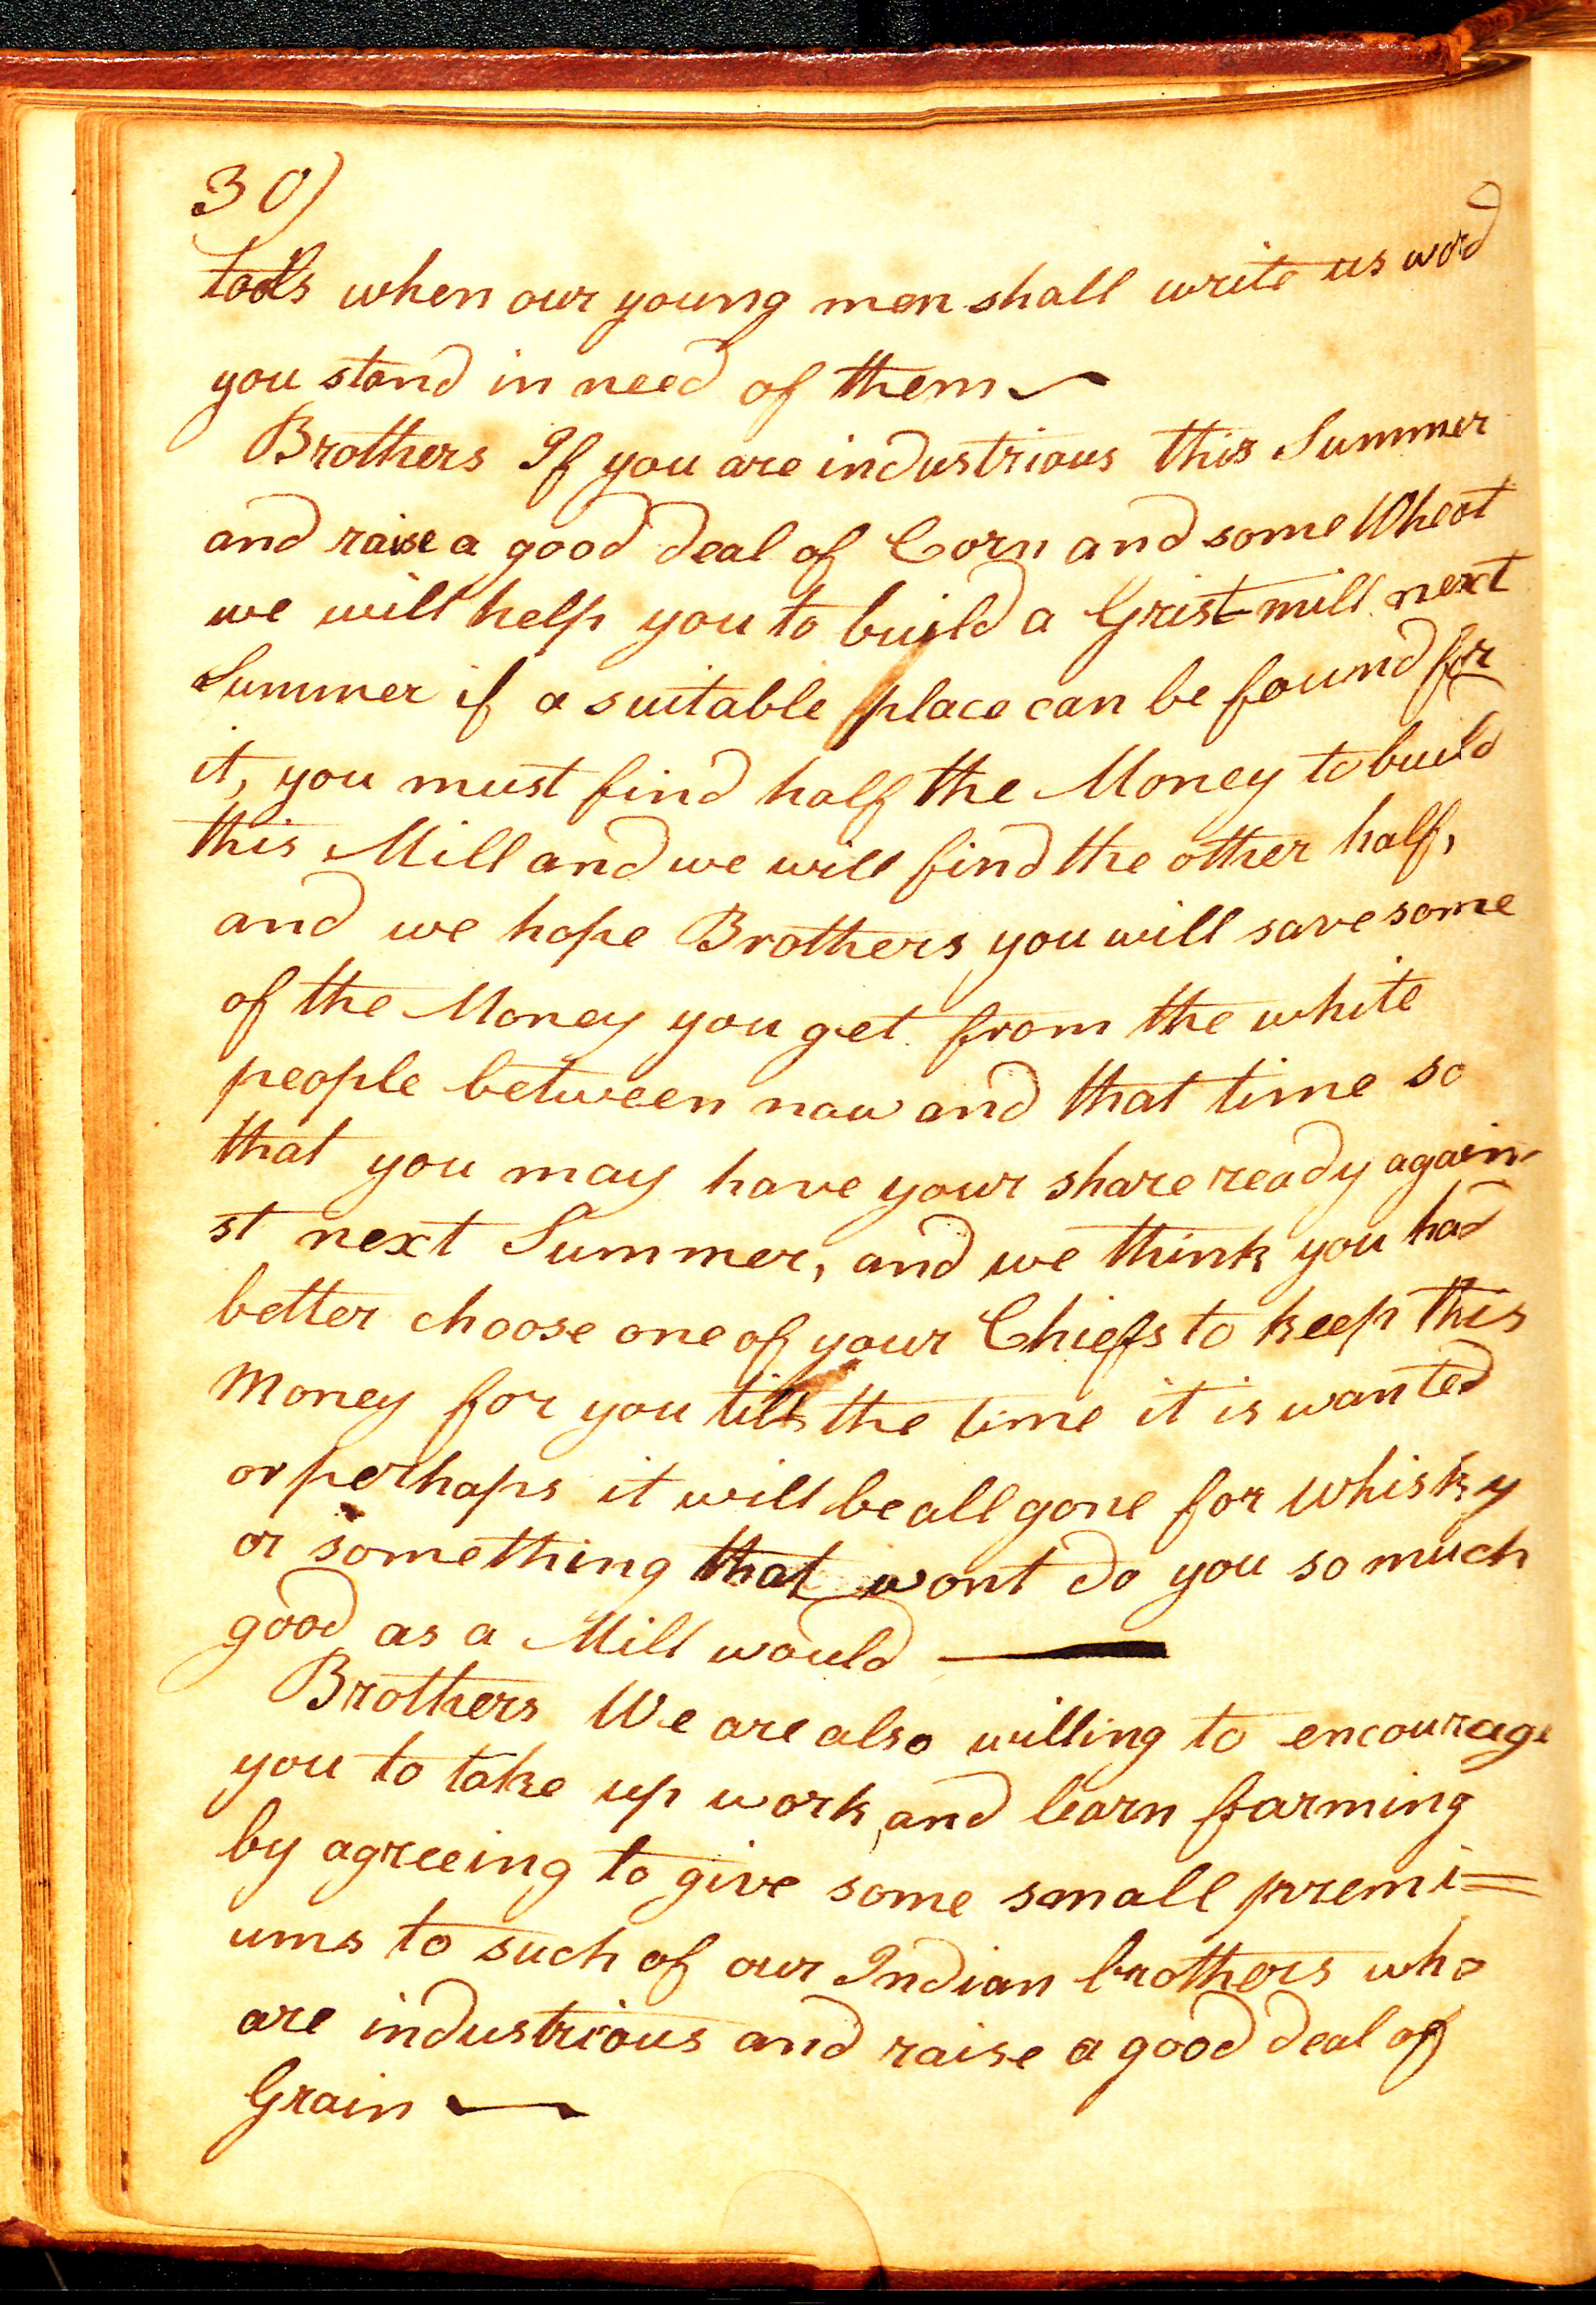 30)
tools when our young men shall write us word
you stand in need of them ~
Brothers If you are industrious this Summer
and raise a good deal of Corn and some Wheat
we will help you to build a Grist-mill next
Summer if a suitable place can be found for
it, you must find half the Money to build
this Mill and we will find the other half,
and we hope Brothers you will save some
of the Money you get from the white
people between now and that time so
that you may have your share ready again-
st next Summer, and we think you had
better choose one of your Chiefs to keep this
Money for you till the time it is wanted
or perhaps it will be all gone for Whisky
or something that wont do you so much
good as a Mill would —
Brothers We are also willing to encourage
you to take up work, and learn farming
by agreeing to give some small premi=
ums to such of our Indian brothers who
are industrious and raise a good deal of
Grain —